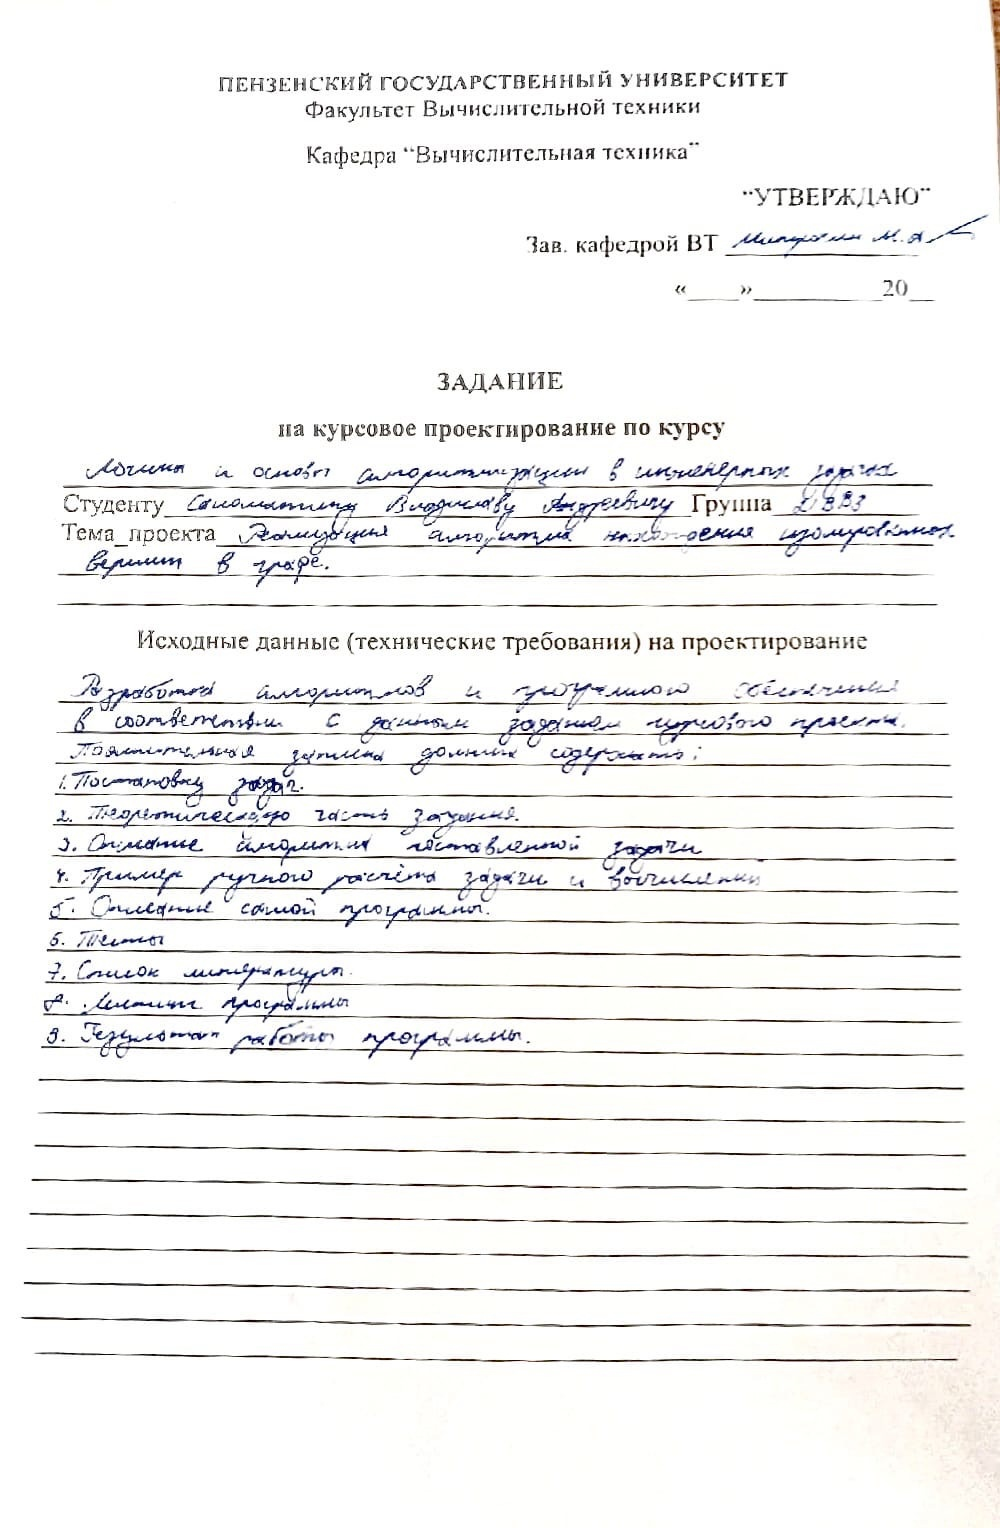 ПЕНЗЕНСКИЙ ГОСУДАРСТВЕННЫЙ УНИВЕРСИТЕТ
Факультет Вычислительной техники
Кафедра “Вычислительная техника”
“УТВЕРЖДАЮ”
Зав. кафедрой ВТ М.А.
«____»__________20__
ЗАДАНИЕ
на курсовое проектирование по курсу
Логика и основы алгоритмизации в инженерных задачах
Студенту Владиславу Андреевичу Группа
Тема_проекта Реализация алгоритма нахождения изолированных
вершин в графе.
Исходные данные (технические требования) на проектирование
Разработка алгоритмов и программного обеспечения
в соответствии с данным заданием курсового проекта.
Пояснительная записка должна содержать:
1. Постановку задач.
2. Теоретическую часть задания.
3. Описание алгоритма поставленной задачи
4. Пример ручного расчёта задачи и вычислений
5. Описание самой программы.
6. Тесты
7. Список литературы.
8. Листинг программы
9. Результат работы программы.